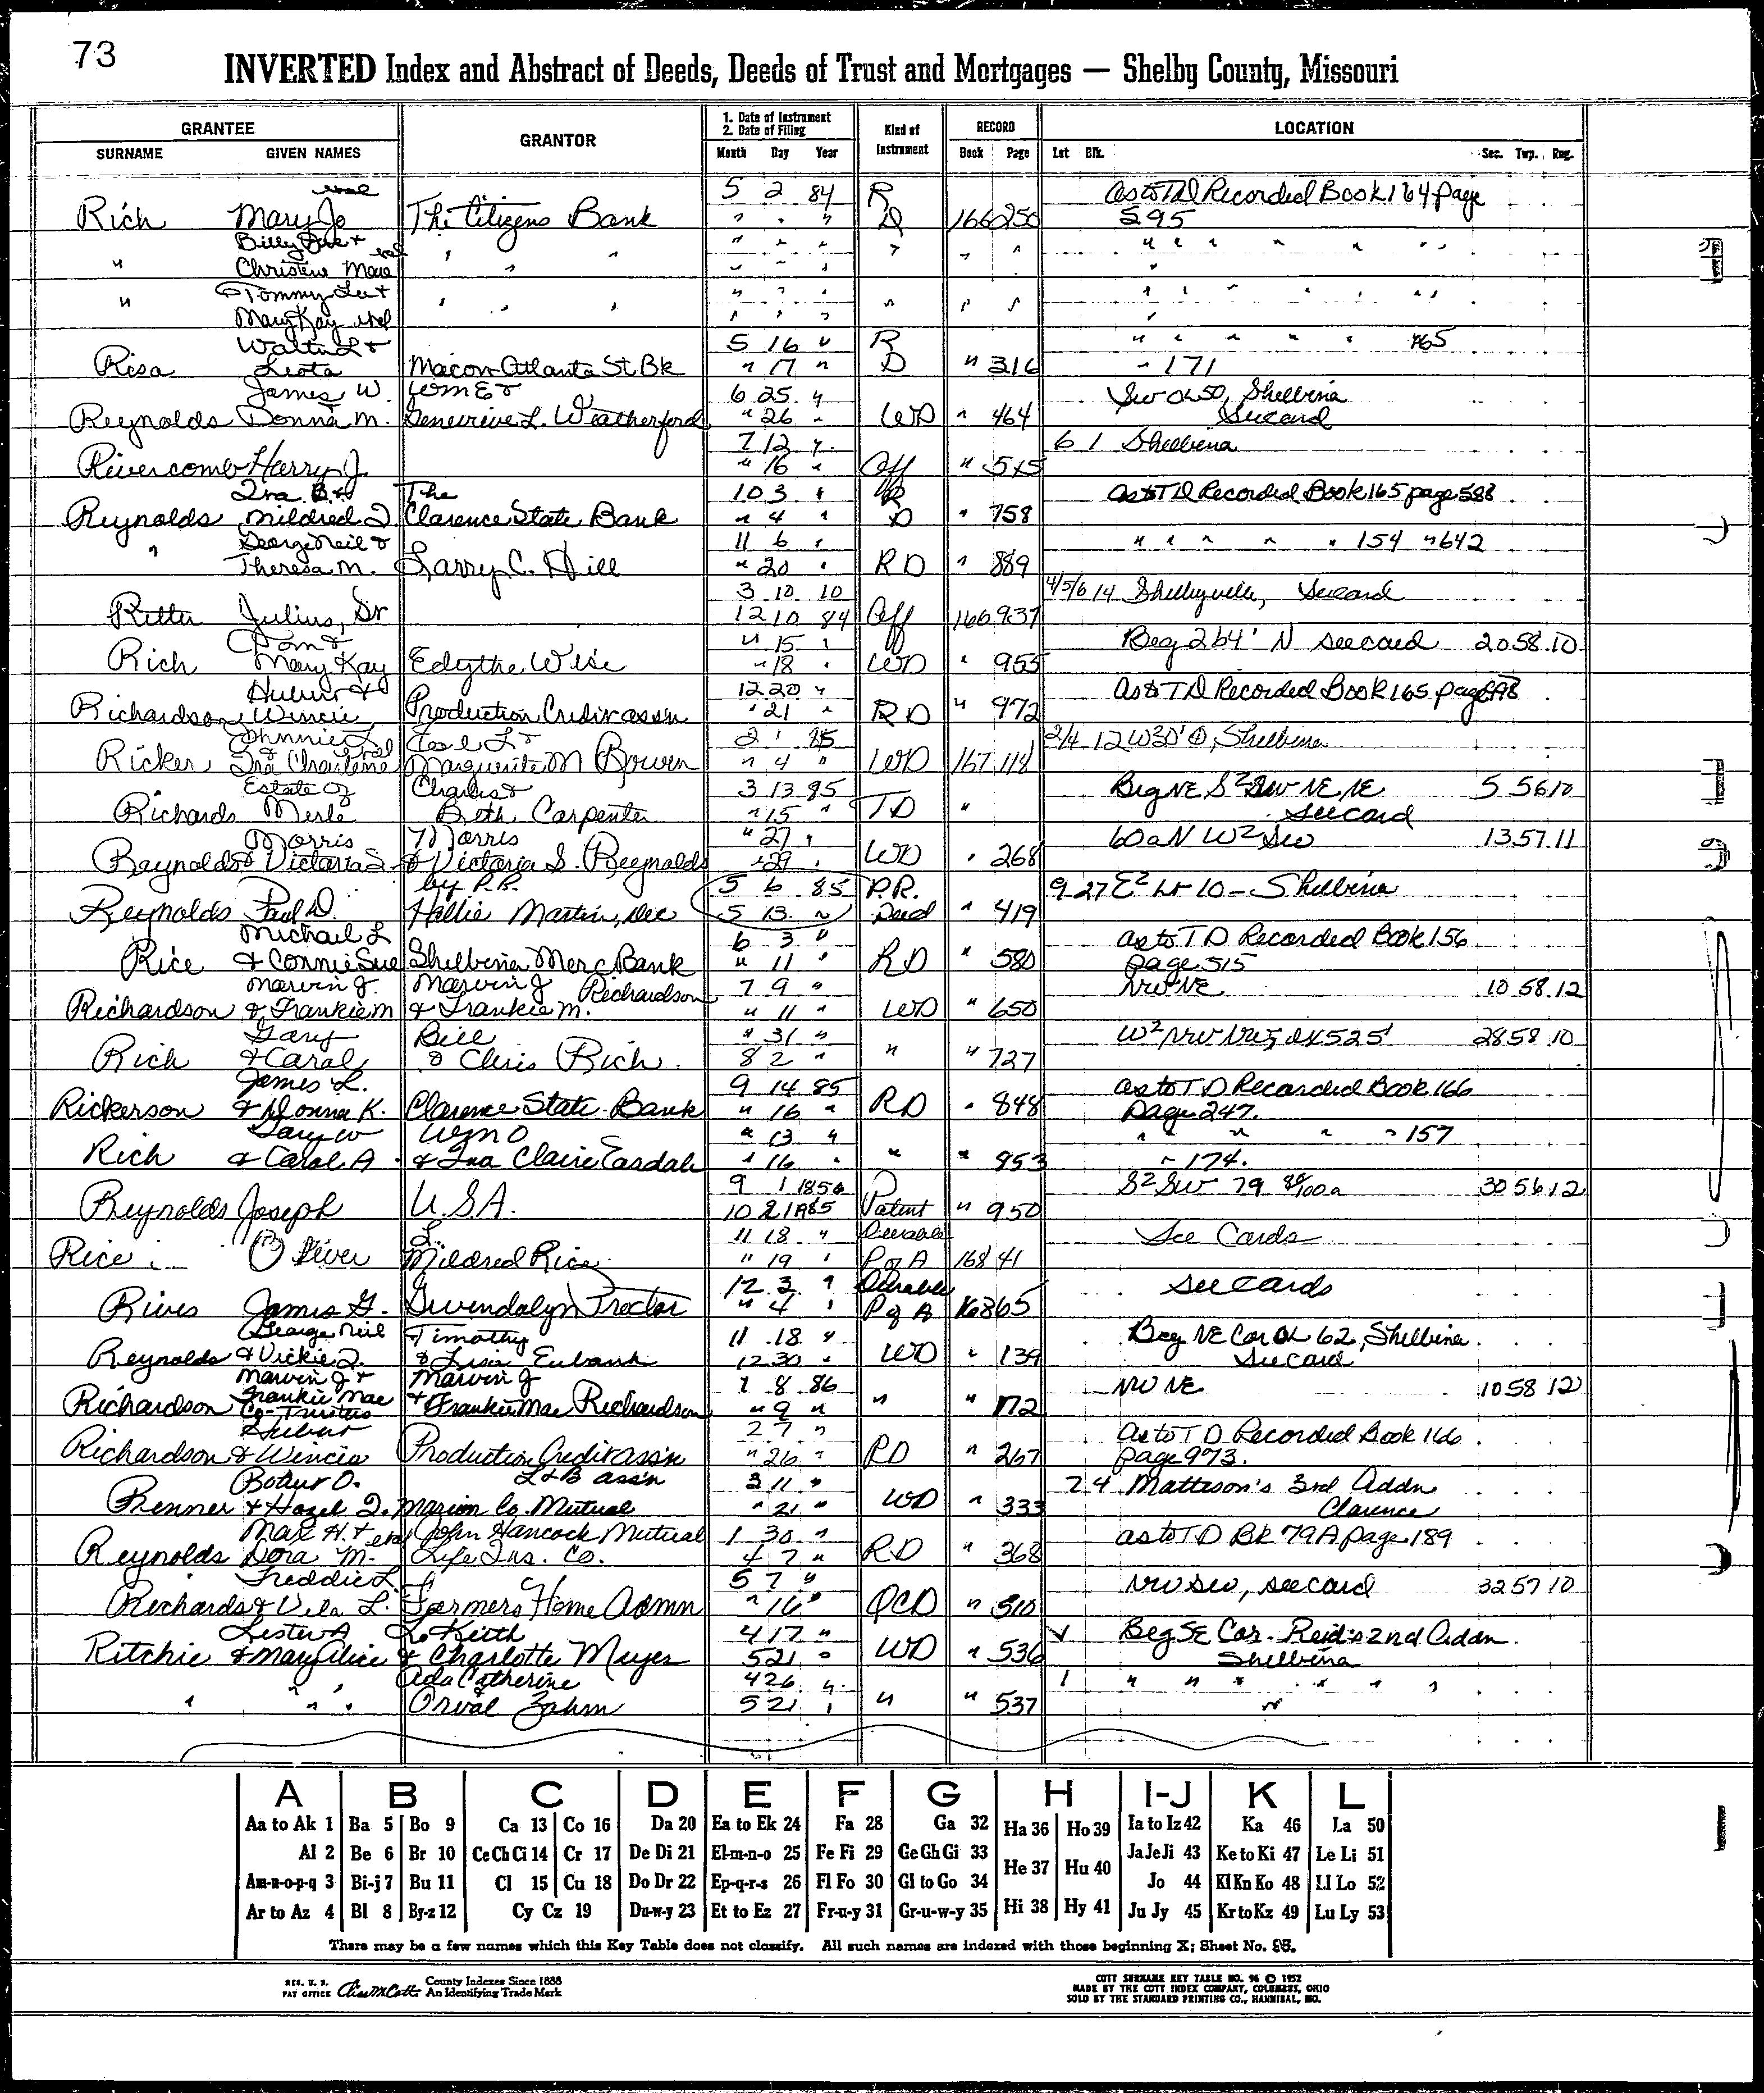 73
INVERTED Index and Abstract of Deeds, Deeds of Trust and Mortgages — Shelby County, Missouri
GRANTEE GRANTOR 1. Date of Instrument 2. Date of Filing Kind of Instrument RECORD LOCATION
SURNAME GIVEN NAMES Month Day Year Book Page Lot Blk. Sec. Twp. Rng.
5 2 84 R as to TD Recorded Book 164 page
Rich Mary Jo The Citizens Bank " " " D 166 250 295
Billy " " " " " " " " " "
" Christine " " " " " " " "
Tommy Lee & " " " " " " " "
" Mary Kay " " " " " " " " "
Walter L & 5 16 " R " " " " " 165
Risa Leota Macon Atlanta St Bk " 17 " D " 316 " 171
James W. Wm E & 6 25 " SW OL 50, Shelbina
Reynolds Donna M. Genevieve L. Weatherford " 26 " WD " 464 See card
7 12 " 6 1 Shelbina
Rivercomb Harry J. " 16 " Aff " 515
Ira B. & The 10 3 " R as to TD Recorded Book 165 page 588
Reynolds Mildred I. Clarence State Bank " 4 " D " 758
George Neil & 11 6 " " " " " " 154 " 642
" Theresa M. Larry C. Hill " 20 " RD " 889
3 10 10 4/5/6 14 Shelbyville, See card
Ritter Julius, Sr 12 10 84 Aff 166 937
Tom & " 15 " Beg 264' N see card 20 58 10
Rich Mary Kay Edythe Wise " 18 " WD " 955
Hubert & 12 20 " as to TD Recorded Book 165 page
Richardson Wincie Production Credit assn " 21 " RD " 972
Johnnie L. & 2 1 85 2/4 12 W30' Shelbina
Ricker Ira Charlene Marguerite M Bowen " 4 " WD 167 118
Estate of Charles & 3 13 85 Beg NE S2 SW NE NE 5 56 10
Richards Merle Beth Carpenter " 15 " TD " See card
Morris Morris " 27 " 60a N W2 SW 13 57 11
Reynolds & Victoria S. & Victoria S. Reynolds " 29 " WD " 268
by P.R. 5 6 85 P.R. 9 27 E2 Lt 10 - Shelbina
Reynolds Paul D. Hallie Martin, Dec 5 13 " Deed " 419
Michael L 6 3 " as to TD Recorded Book 156
Rice & Connie Sue Shelbina Merc Bank " 11 " RD " 580 page 515
Marvin J. Marvin J Richardson 7 9 " NW NE 10 58 12
Richardson & Frankie M & Frankie M. " 11 " WD " 650
Gary Bill " 31 " W2 NW NW, 525' 28 58 10
Rich & Carol & Chris Rich 8 2 " " " 727
James L. 9 14 85 as to TD Recorded Book 166
Rickerson & Donna K. Clarence State Bank " 16 " RD " 848 page 247.
Gary W Wm O " 13 " " " " " 157
Rich & Carol A & Ina Claire Easdale " 16 " " " 853 " 174.
9 1 1856 S2 SW 79 88/100a 30 56 12
Reynolds Joseph U.S.A. 10 21 1985 Patent " 950
L. 11 18 " Durable See Cards
Rice Oliver Mildred Rice " 19 " P of A 168 41
12 3 " Durable See cards
Rives James G. Gwendolyn Proctor " 4 " P of A 168 65
George Neil Timothy 11 18 " Beg NE Cor OL 62, Shelbina
Reynolds & Vickie I. & Lisa Eubank 12 30 " WD " 139 See card
Marvin J & Marvin J 1 8 86 NW NE 10 58 12
Richardson Frankie Mae & Frankie Mae Richardson " 9 " " " 172
Co-Trustees
Hubert 2 7 " as to TD Recorded Book 166
Richardson & Wincie Production Credit assn " 26 " RD " 267 page 973.
O. L & B assn 3 11 " 2 4 Matteson's 3rd Addn
Renner & Hazel I. Marion Co. Mutual " 21 " WD " 333 Clarence
Max H. & etal John Hancock Mutual 1 30 " as to TD Bk 79A page 189
Reynolds Dora M. Life Ins. Co. 4 7 " RD " 368
Freddie L. 5 7 " NW SW, see card 32 57 10
Richards & Vela L. Farmers Home Admn " 16 " QCD " 510
Lester A L. Keith 4 17 " Beg SE Cor. Reid's 2nd Addn.
Ritchie & Mary Alice & Charlotte Meyer 5 21 " WD " 536 Shelbina
Ada Catherine 4 26 " 1 " " " " " " "
" " " & Orval Zahm 5 21 " " " 537 "
A B C D E F G H I-J K L
Aa to Ak 1 Ba 5 Bo 9 Ca 13 Co 16 Da 20 Ea to Ek 24 Fa 28 Ga 32 Ha 36 Ho 39 Ia to Iz 42 Ka 46 La 50
Al 2 Be 6 Br 10 Ce Ch Ci 14 Cr 17 De Di 21 El-m-n-o 25 Fe Fi 29 Ge Gh Gi 33 He 37 Hu 40 Ja Je Ji 43 Ke to Ki 47 Le Li 51
Am-n-o-p-q 3 Bi-j 7 Bu 11 Cl 15 Cu 18 Do Dr 22 Ep-q-r-s 26 Fl Fo 30 Gl to Go 34 Jo 44 Kl Kn Ko 48 Ll Lo 52
Ar to Az 4 Bl 8 By-z 12 Cy Cz 19 Du-w-y 23 Et to Ez 27 Fr-u-y 31 Gr-u-w-y 35 Hi 38 Hy 41 Ju Jy 45 Kr to Kz 49 Lu Ly 53
There may be a few names which this Key Table does not classify. All such names are indexed with those beginning X; Sheet No. 95.
REG. U. S. PAT OFFICE County Indexes Since 1888 An Identifying Trade Mark
COTT SURNAME KEY TABLE NO. 96 © 1952
MADE BY THE COTT INDEX COMPANY, COLUMBUS, OHIO
SOLD BY THE STANDARD PRINTING CO., HANNIBAL, MO.